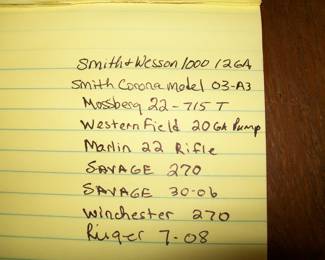 Smith & Wesson 1000 12GA
Smith Corona model 03-A3
Mossberg 22-715 T
Western Field 20 GA Pump
Marlin 22 Rifle
SAVAGE 270
SAVAGE 30-06
Winchester 270
Ruger 7-08